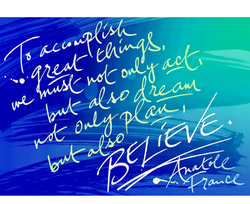 To accomplish
great things,
we must not only act,
but also dream
not only plan,
but also
BELIEVE.
Anatole
France